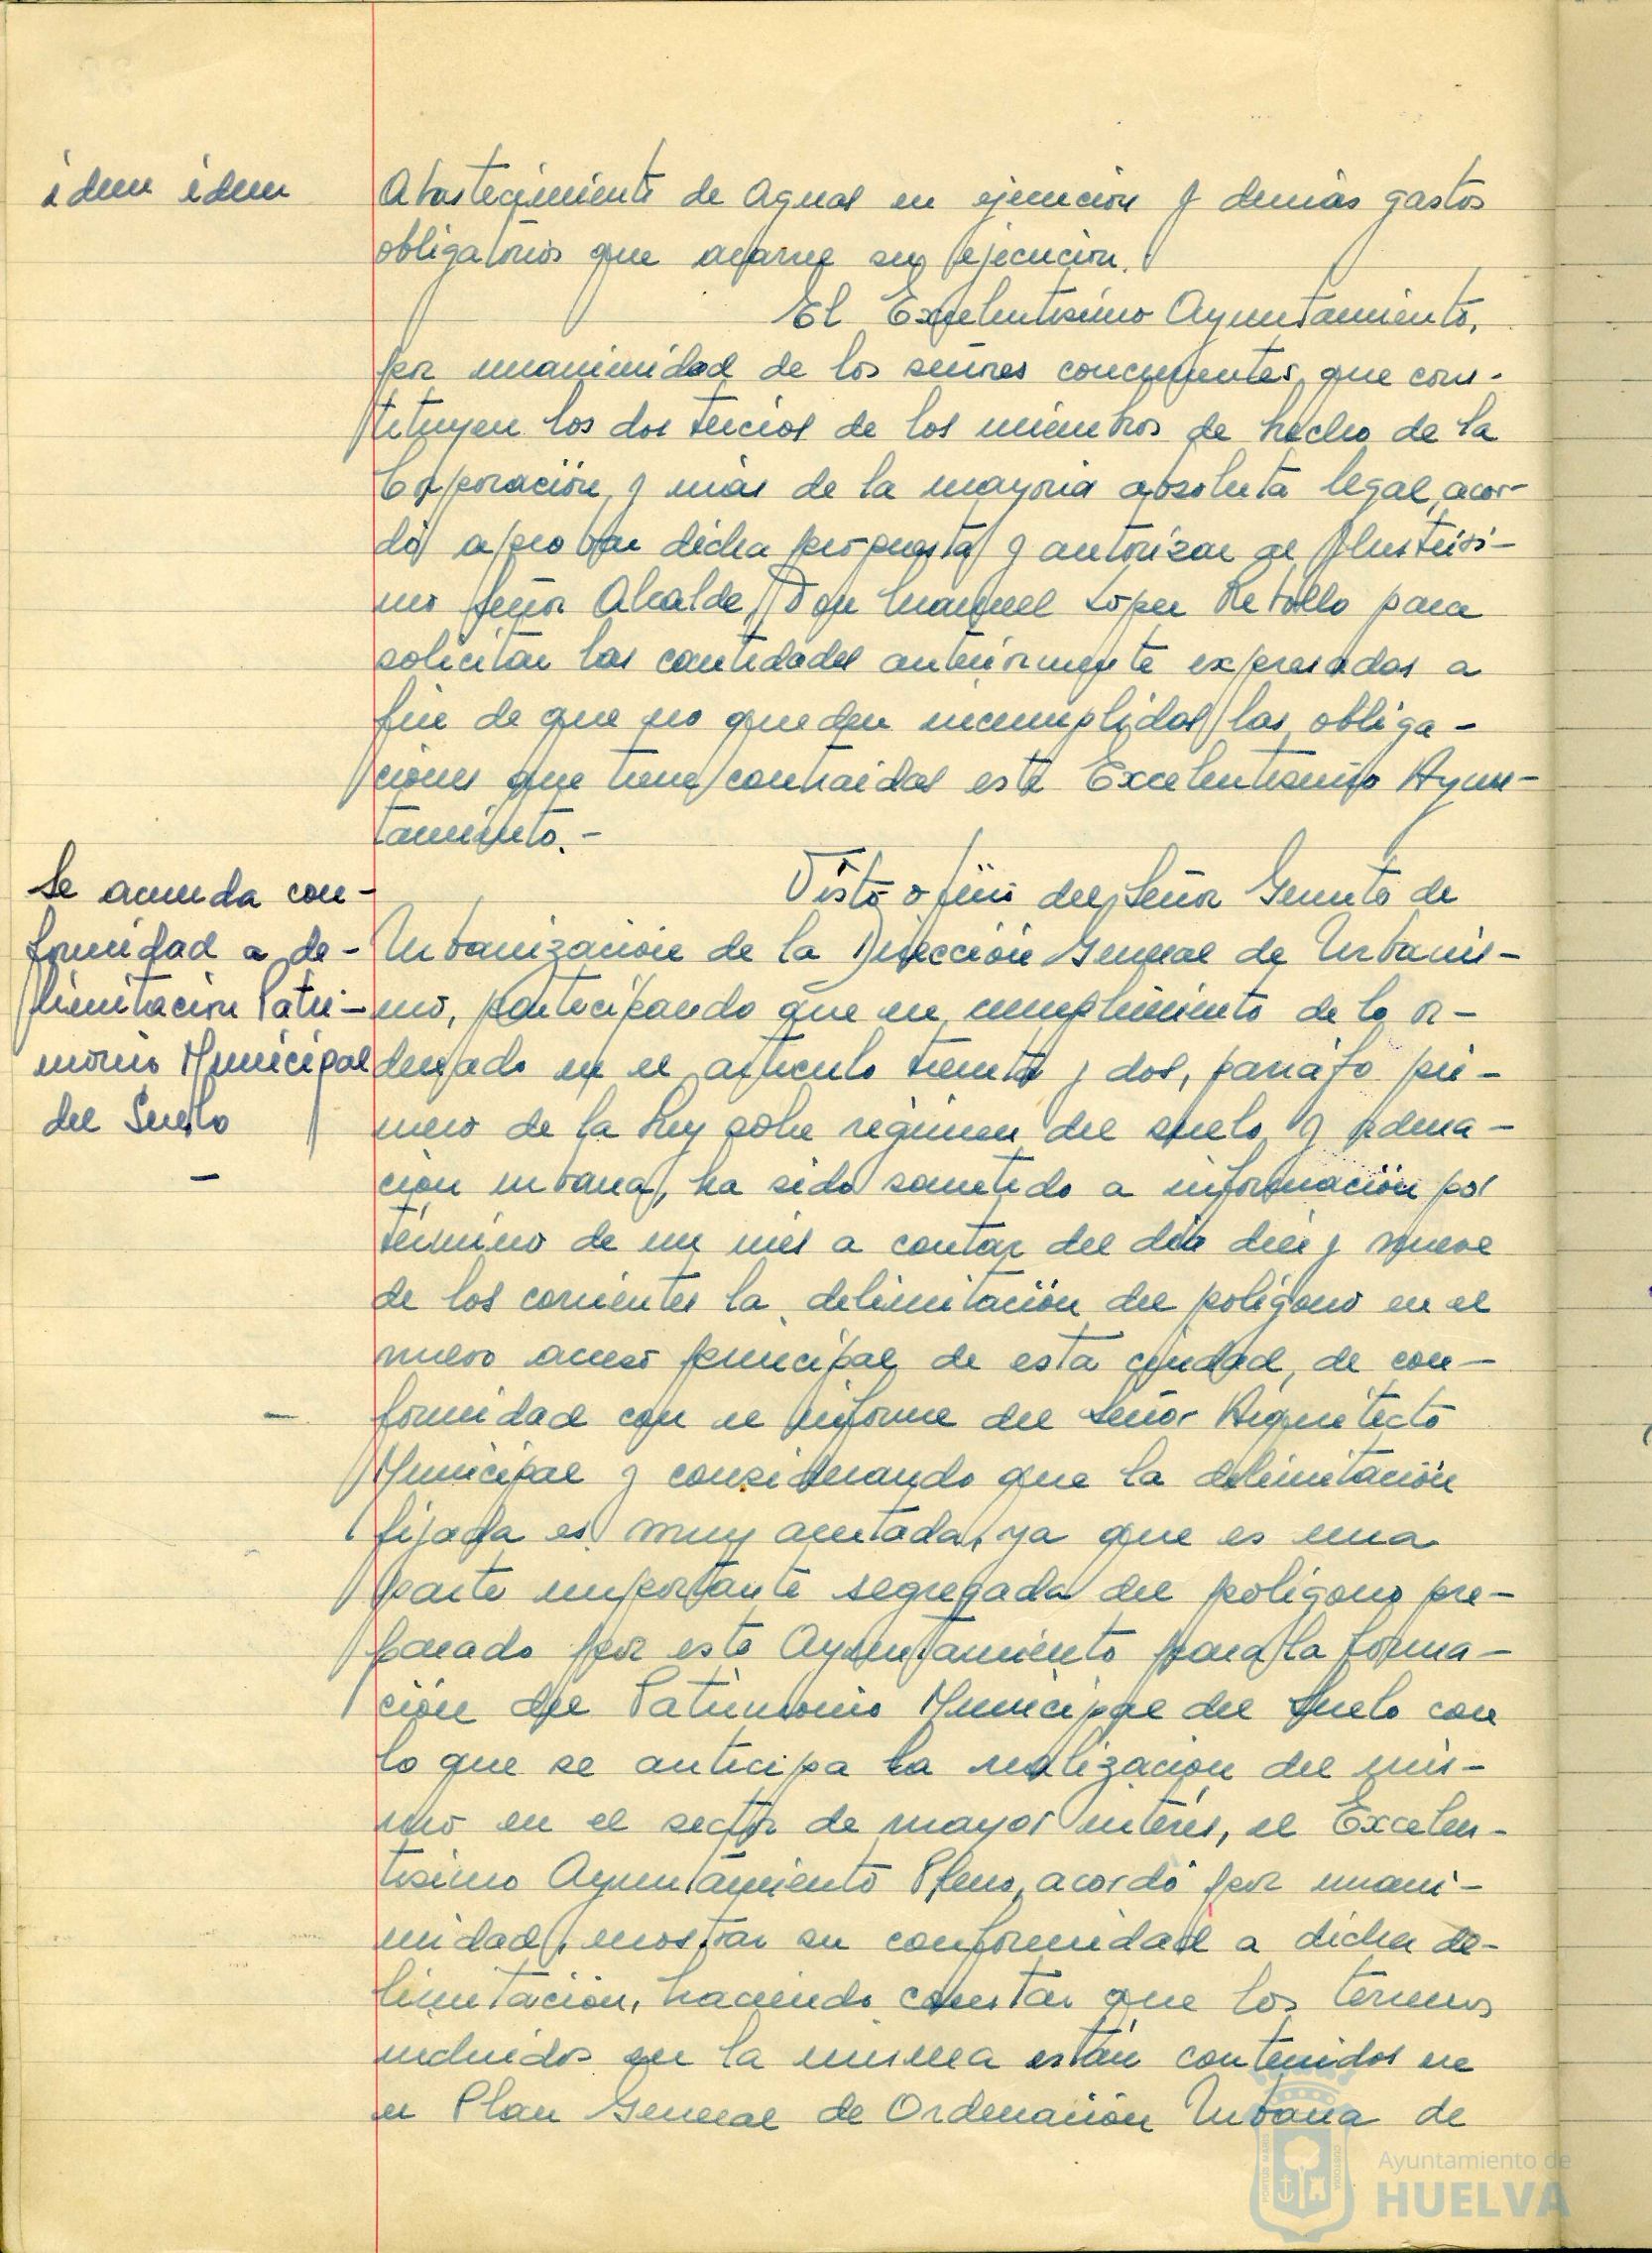 idem idem
Abastecimiento de Aguas en ejecución y demás gastos
obligatorios que acarree su ejecución.
El Excelentísimo Ayuntamiento,
por unanimidad de los señores concurrentes, que cons-
tituyen los dos tercios de los miembros de hecho de la
Corporación, y más de la mayoría absoluta legal, acor-
dó aprobar dicha propuesta y autorizar al Ilustrísi-
mo Señor Alcalde, Don Manuel López Rebollo para
solicitar las cantidades anteriormente expresadas a
fin de que no queden incumplidas las obliga-
ciones que tiene contraidas este Excelentísimo Ayun-
tamiento.-
Se acuerda con-
formidad a de-
limitación Patri-
monio Municipal
del Suelo
Visto oficio del Señor Gerente de
Urbanización de la Dirección General de Urbanis-
mo, participando que en cumplimiento de lo or-
denado en el artículo treinta y dos, párrafo pri-
mero de la Ley sobre régimen del suelo y ordena-
ción urbana, ha sido sometido a información por
término de un mes a contar del día diez y nueve
de los corrientes la delimitación del polígono en el
nuevo acceso principal de esta ciudad, de con-
formidad con el informe del Señor Arquitecto
Municipal y considerando que la delimitación
fijada es muy acertada, ya que es una
parte importante segregada del polígono pre-
parado por este Ayuntamiento para la forma-
ción del Patrimonio Municipal del Suelo con
lo que se anticipa la realización del mis-
mo en el sector de mayor interés, el Excelen-
tísimo Ayuntamiento Pleno, acordó por unani-
midad, mostrar su conformidad a dicha de-
limitación, haciendo constar que los terrenos
incluidos en la misma están contenidos en
el Plan General de Ordenación Urbana de
Ayuntamiento de
HUELVA